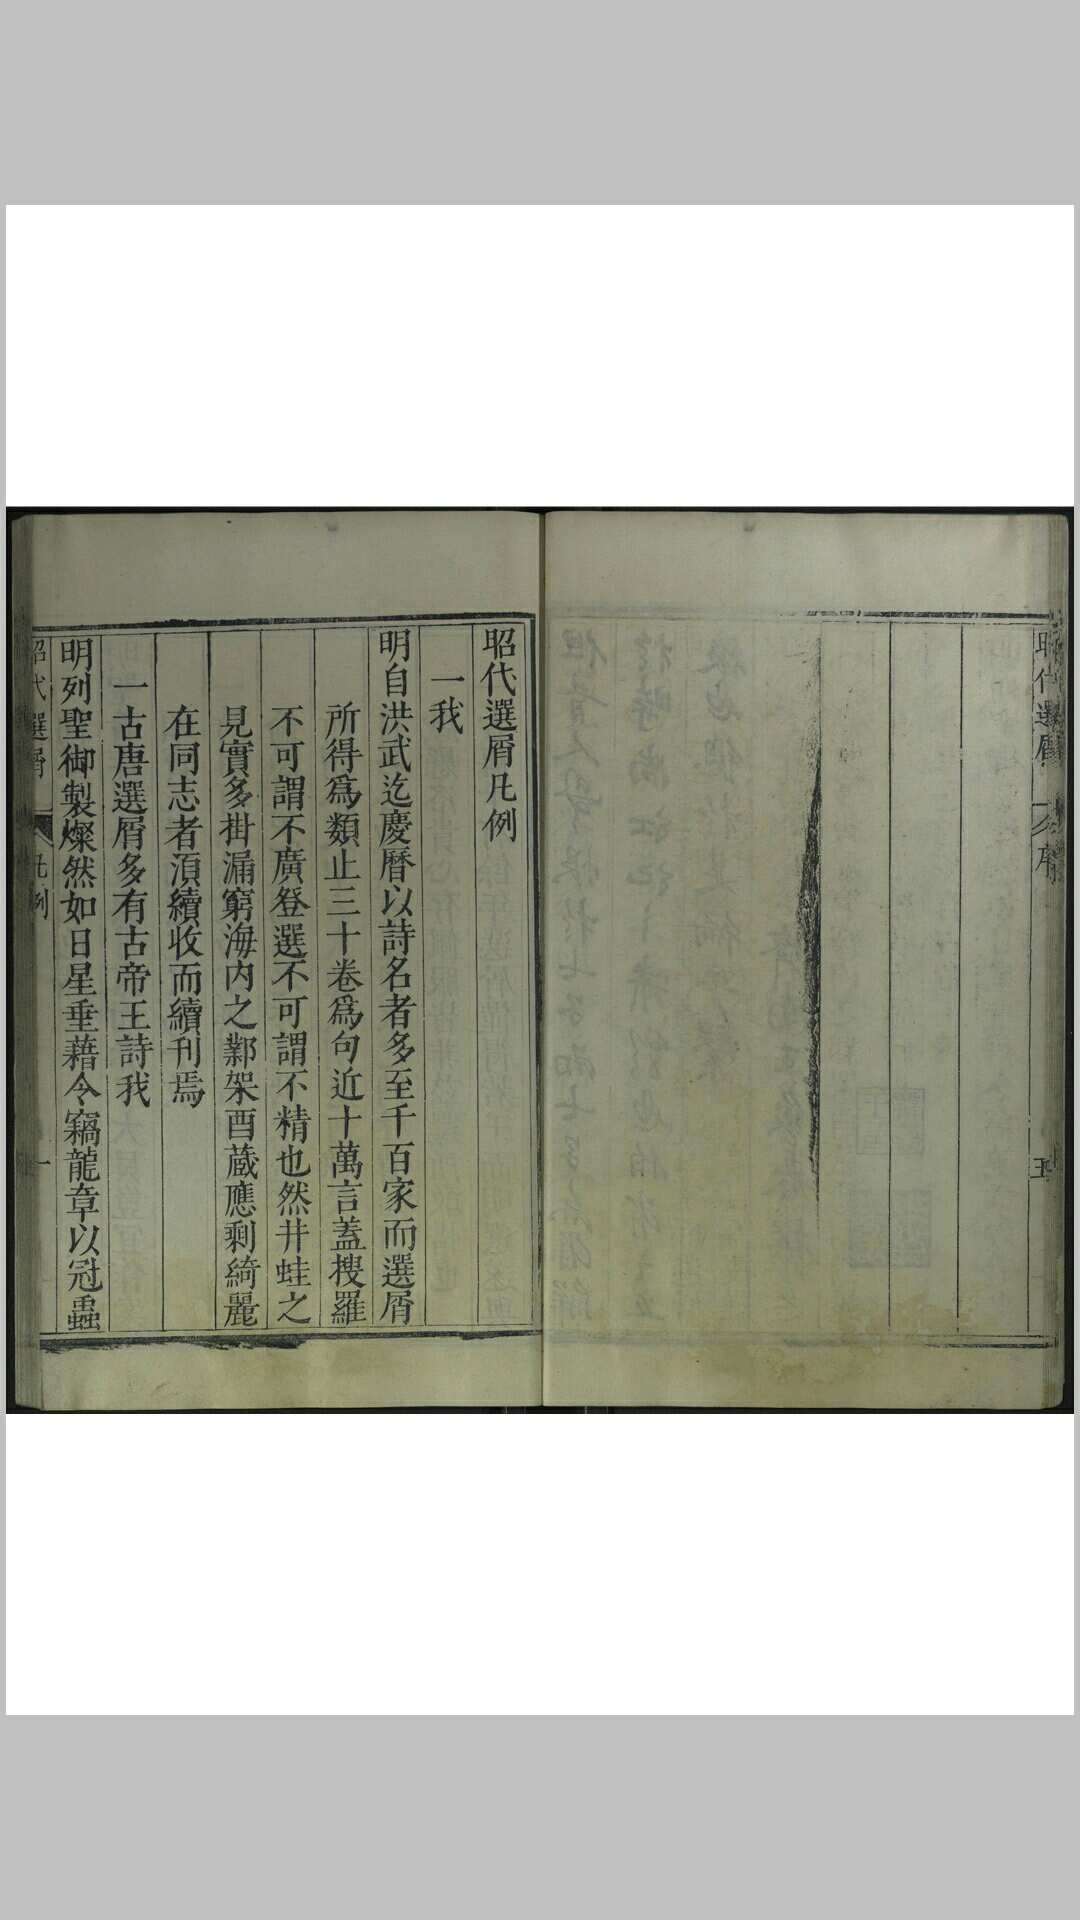 昭代選屑
序
五
昭代選屑凡例
一我
明自洪武迄慶曆以詩名者多至千百家而選屑
所得爲類止三十卷爲句近十萬言蓋搜羅
不可謂不廣登選不可謂不精也然井蛙之
見實多掛漏窮海内之鄴架酉蔵應剩綺麗
在同志者湏續收而續刊焉
一古唐選屑多有古帝王詩我
明列聖御製燦然如日星垂藉令竊龍章以冠蟲
昭代選屑
凡例
一